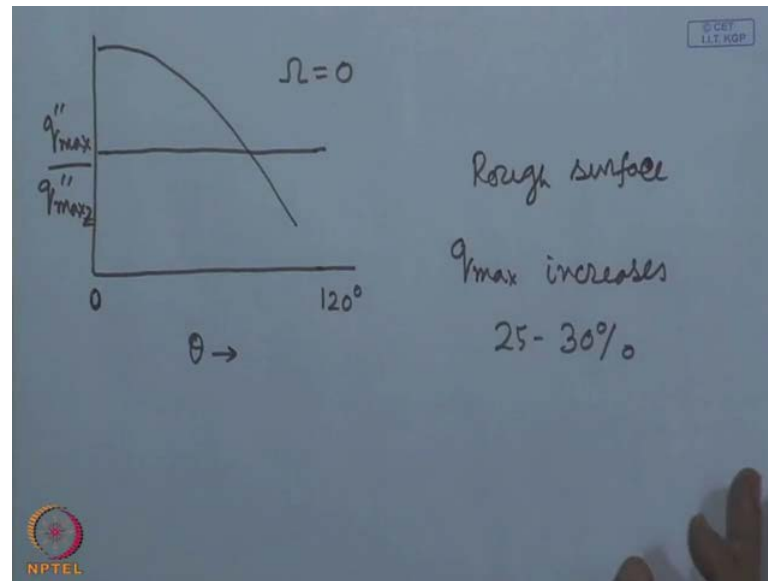 © CET
I.I.T. KGP
Ω = 0
q''max
q''maxz
0
120°
θ →
Rough surface
qmax increases
25 - 30%
NPTEL